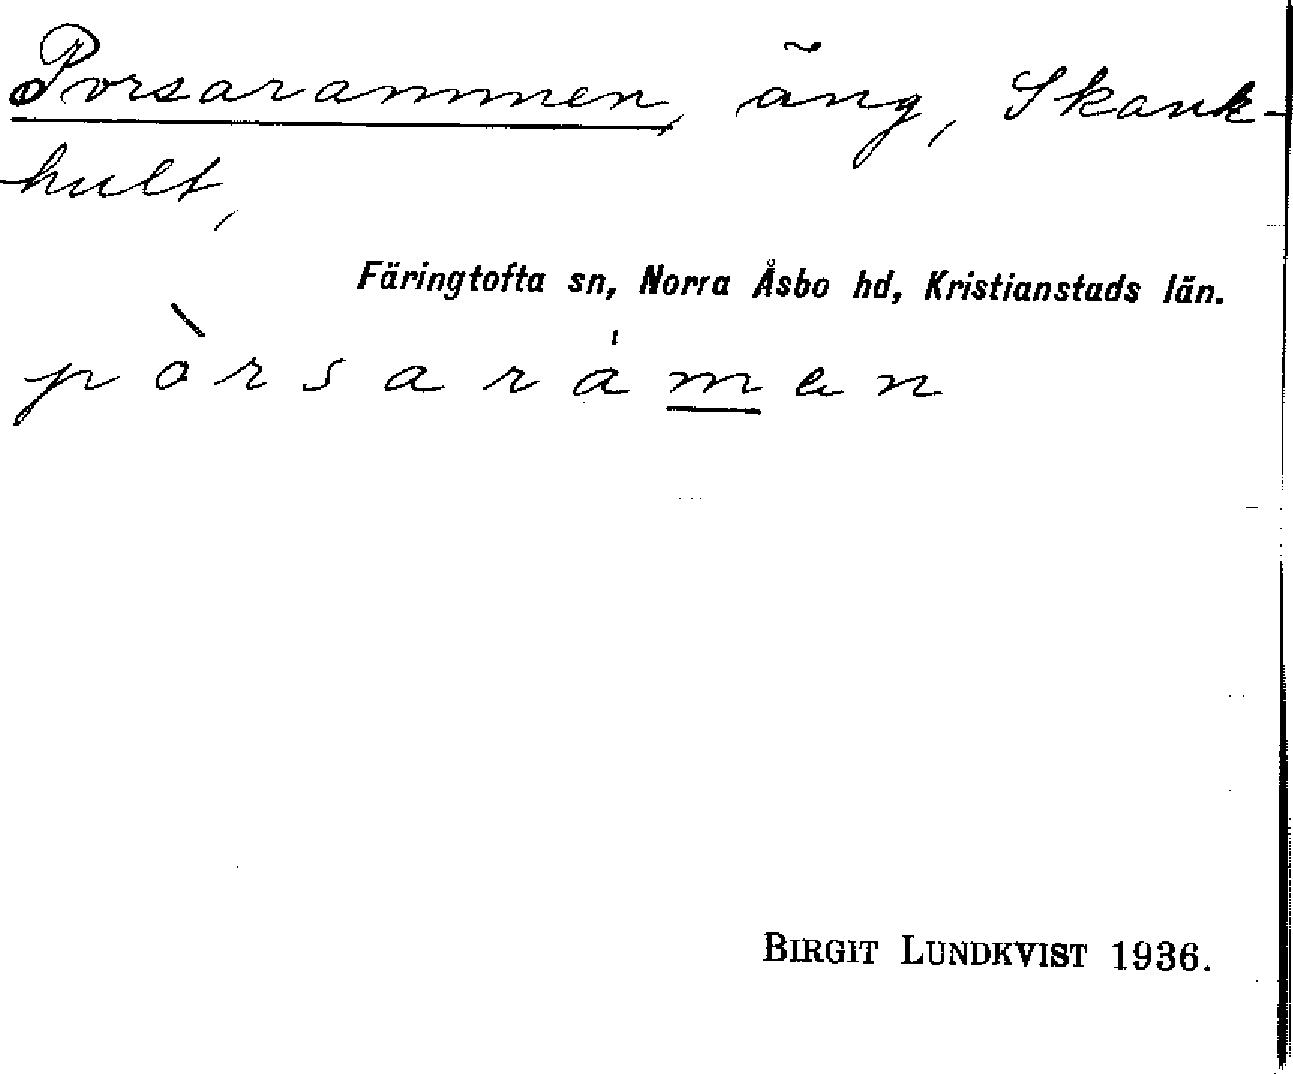 Porsarammen, äng, Skank-
hult,
Färingtofta sn, Norra Åsbo hd, Kristianstads län.
pòrsarámen
BIRGIT LUNDKVIST 1936.